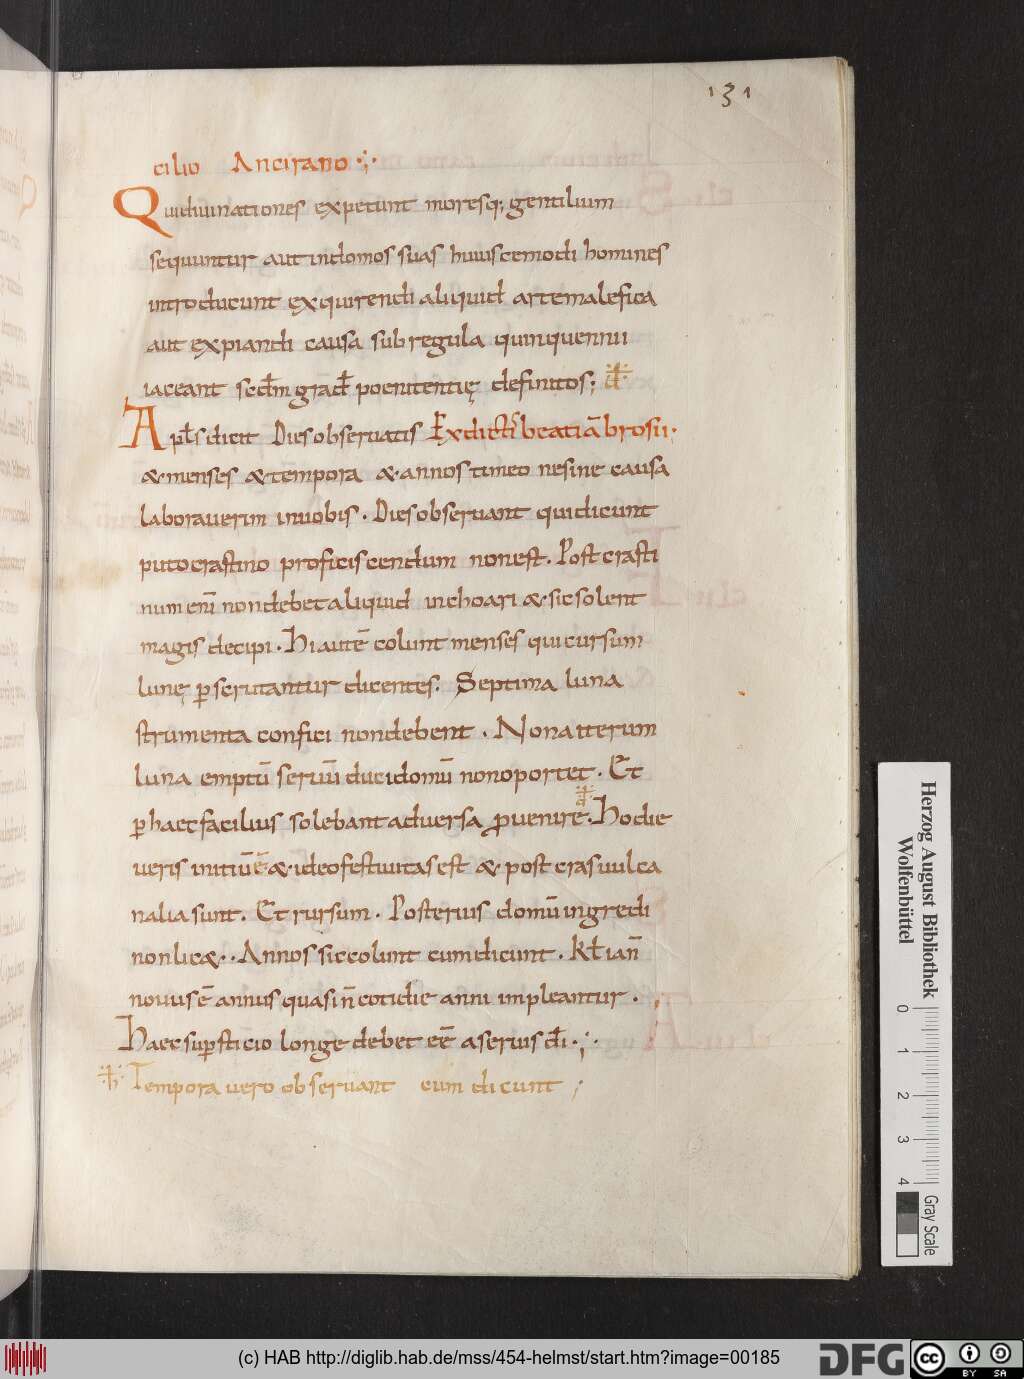 131
cilio Ancirano ·;·
Quidiuinationes expetunt moresq; gentilium
sequuntur aut indomos suas huiuscemodi homines
introducunt exquirendi aliquid artemalefica
aut expiandi causa subregula quinquennii
iaceant scdm grad poenitentię definitos;
Apls dicit Dies obseruatis Ex dictis beati ābrosii·
&·menses &tempora &·annos timeo nesine causa
laborauerim inuobis · Dies obseruant quidicunt
puto crastino proficiscendum nonest. Post crasti
num eni nondebet aliquid inchoari & sic solent
magis decipi · Hi autē colunt menses qui cursum
lunę pscrutantur dicentes. Septima luna
strumenta confici nondebent . Nona iterum
luna emptū seruū duci domū nonoportet · Et
phaec facilius solebant aduersa puenire· Hodie
ueris initiū ē &·ideo festiuitas est &·post cras uulca
nalia sunt. Et rursum · Posterius domū ingredi
nonlic&·· Annos sic colunt cum dicunt · Kl ian̄
nouus ē annus quasi n̄ cotidie anni impleantur .
Haec supsticio longe debet eē aseruis dī ·;·
·h· Tempora uero obseruant cum dicunt ;
Herzog August Bibliothek
Wolfenbüttel
0 1 2 3 4
Gray Scale
(c) HAB http://diglib.hab.de/mss/454-helmst/start.htm?image=00185
DFG
cc BY SA